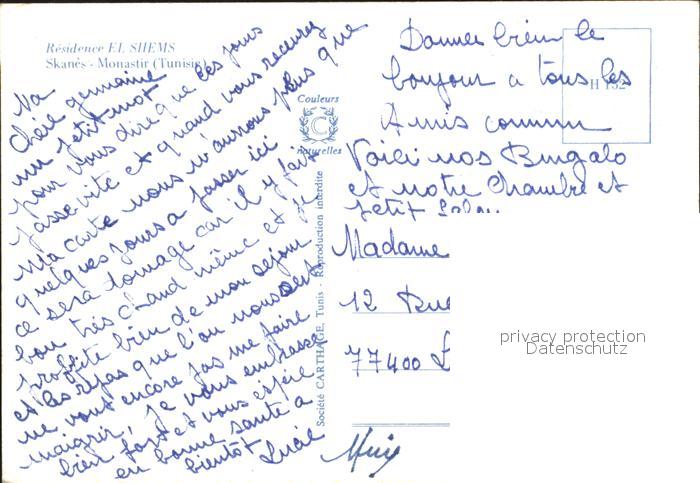 Résidence EL SHEMS
Skanès - Monastir (Tunisie)
Ma
Chère germaine
un petit mot
pour vous dire que ces jours
passe vite et quand vous recevrez
Ma carte nous n'aurrons plus que
quelques jours a passer ici
ce sera domage car il y fait
bon très chaud même et je
profite bien de mon sejour
et les repas que l'on nous sert
ne vont encore pas me faire
maigrir, je vous embrasse
bien fort et vous espére
en bonne santé a
bientôt Lucie
Couleurs
C
naturelles
Société CARTHAGE, Tunis - Reproduction interdite
H 152
Donner bien le
bonjour a tous les
Amis commun
Voici nos Bungalo
et notre Chambre et
petit Salon
Madame
12 Rue
77400 L
privacy protection
Datenschutz